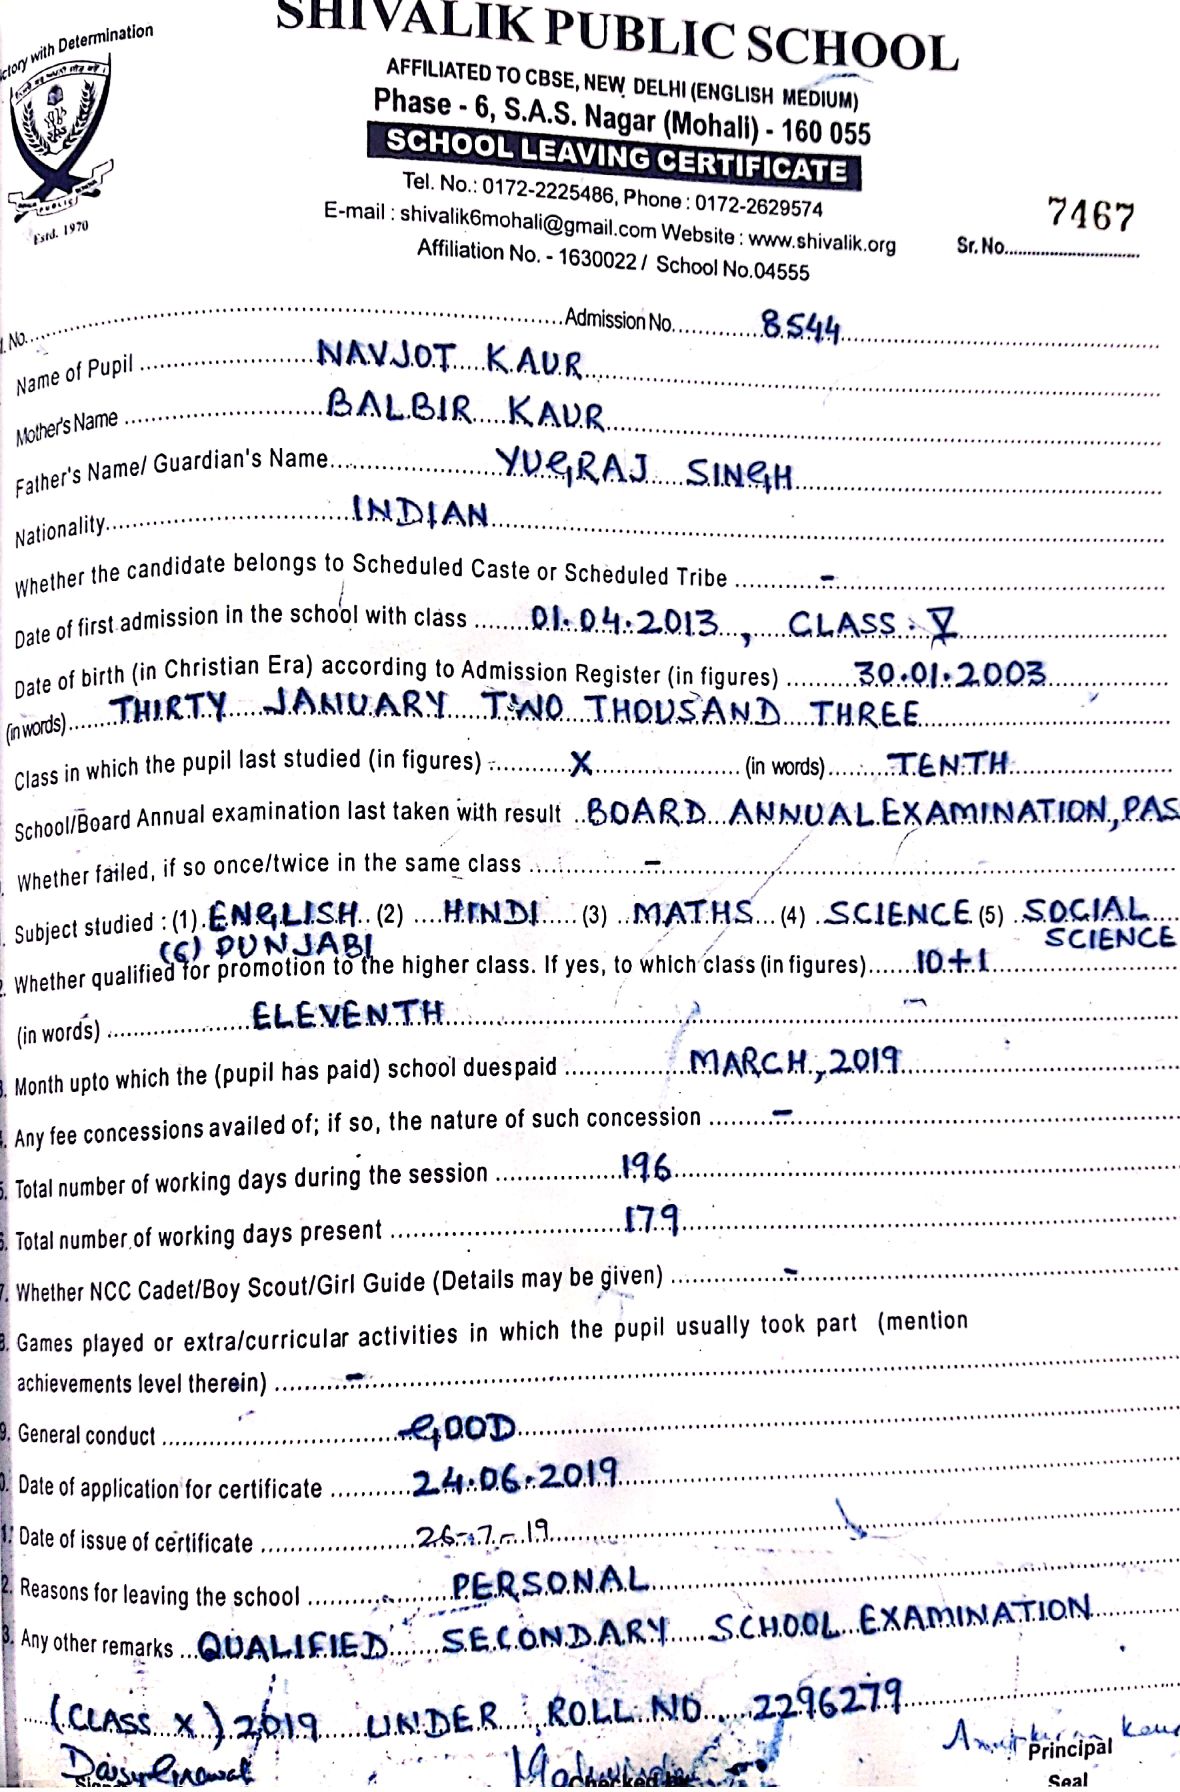 SHIVALIK PUBLIC SCHOOL
with Determination
AFFILIATED TO CBSE, NEW DELHI (ENGLISH MEDIUM)
Phase - 6, S.A.S. Nagar (Mohali) - 160 055
SCHOOL LEAVING CERTIFICATE
Tel. No.: 0172-2225486, Phone : 0172-2629574
E-mail : shivalik6mohali@gmail.com Website : www.shivalik.org
Affiliation No. - 1630022 / School No.04555
PUBLIC
Estd. 1970
Sr. No. 7467
No. Admission No. 8544
Name of Pupil NAVJOT KAUR
Mother's Name BALBIR KAUR
Father's Name/ Guardian's Name YUGRAJ SINGH
Nationality INDIAN
Whether the candidate belongs to Scheduled Caste or Scheduled Tribe -
Date of first admission in the school with class 01.04.2013, CLASS. V
Date of birth (in Christian Era) according to Admission Register (in figures) 30.01.2003
(in words) THIRTY JANUARY TWO THOUSAND THREE
Class in which the pupil last studied (in figures) X (in words) TENTH
School/Board Annual examination last taken with result BOARD ANNUAL EXAMINATION, PAS
Whether failed, if so once/twice in the same class -
Subject studied : (1) ENGLISH (2) HINDI (3) MATHS (4) SCIENCE (5) SOCIAL SCIENCE
(6) PUNJABI
Whether qualified for promotion to the higher class. If yes, to which class (in figures) 10+1
(in words) ELEVENTH
Month upto which the (pupil has paid) school duespaid MARCH, 2019
Any fee concessions availed of; if so, the nature of such concession -
Total number of working days during the session 196
Total number of working days present 179
7. Whether NCC Cadet/Boy Scout/Girl Guide (Details may be given) -
Games played or extra/curricular activities in which the pupil usually took part (mention
achievements level therein) -
9. General conduct GOOD
Date of application for certificate 24.06.2019
Date of issue of certificate 26-7-19
2. Reasons for leaving the school PERSONAL
3. Any other remarks QUALIFIED SECONDARY SCHOOL EXAMINATION
(CLASS X) 2019 UNDER ROLL NO. 2296279
Daisy Grewal
Checked by
Principal
Seal